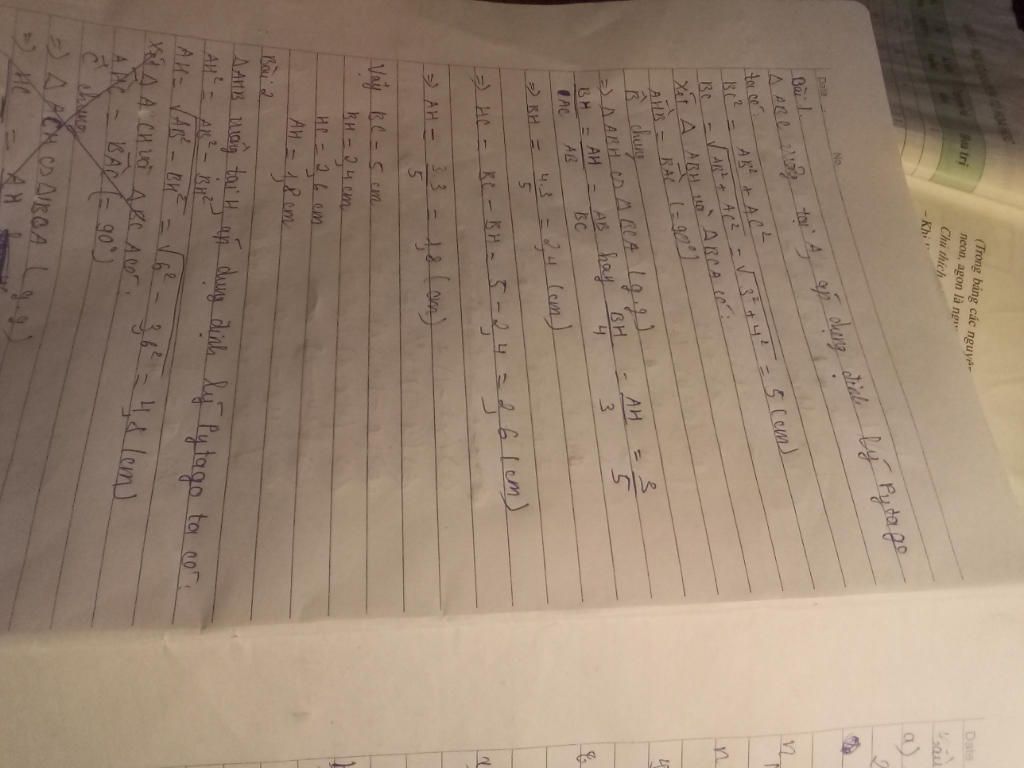 Date
No.
Bài 1
Δ ABC vuông tại A, áp dụng định lý Pytago
ta có:
BC² = AB² + AC²
BC = √AB² + AC² = √3² + 4² = 5 (cm)
Xét Δ ABH và ΔBCA có:
AHB = BAC (= 90°)
B chung
=> ΔABH ∽ ΔBCA (g.g)
BH/AC = AH/AB = AB/BC hay BH/4 = AH/3 = 3/5
=> BH = 4.3/5 = 2,4 (cm)
=> HC = BC - BH = 5 - 2,4 = 2,6 (cm)
=> AH = 3.3/5 = 1,8 (cm)
Vậy BC = 5 cm
BH = 2,4 cm
HC = 2,6 cm
AH = 1,8 cm
Bài 2
ΔAHB vuông tại H áp dụng định lý Pytago ta có:
AH² = AB² - BH²
AH = √AB² - BH² = √6² - 3,6² = 4,8 (cm)
Xét Δ ACH và ΔBCA có:
= BAC (= 90°)
C chung
=> Δ ACH ∽ ΔBCA (g.g)
=> HC = AH
(Trong bảng các nguyên
neon, agon là
Chú thích:
Date
a)